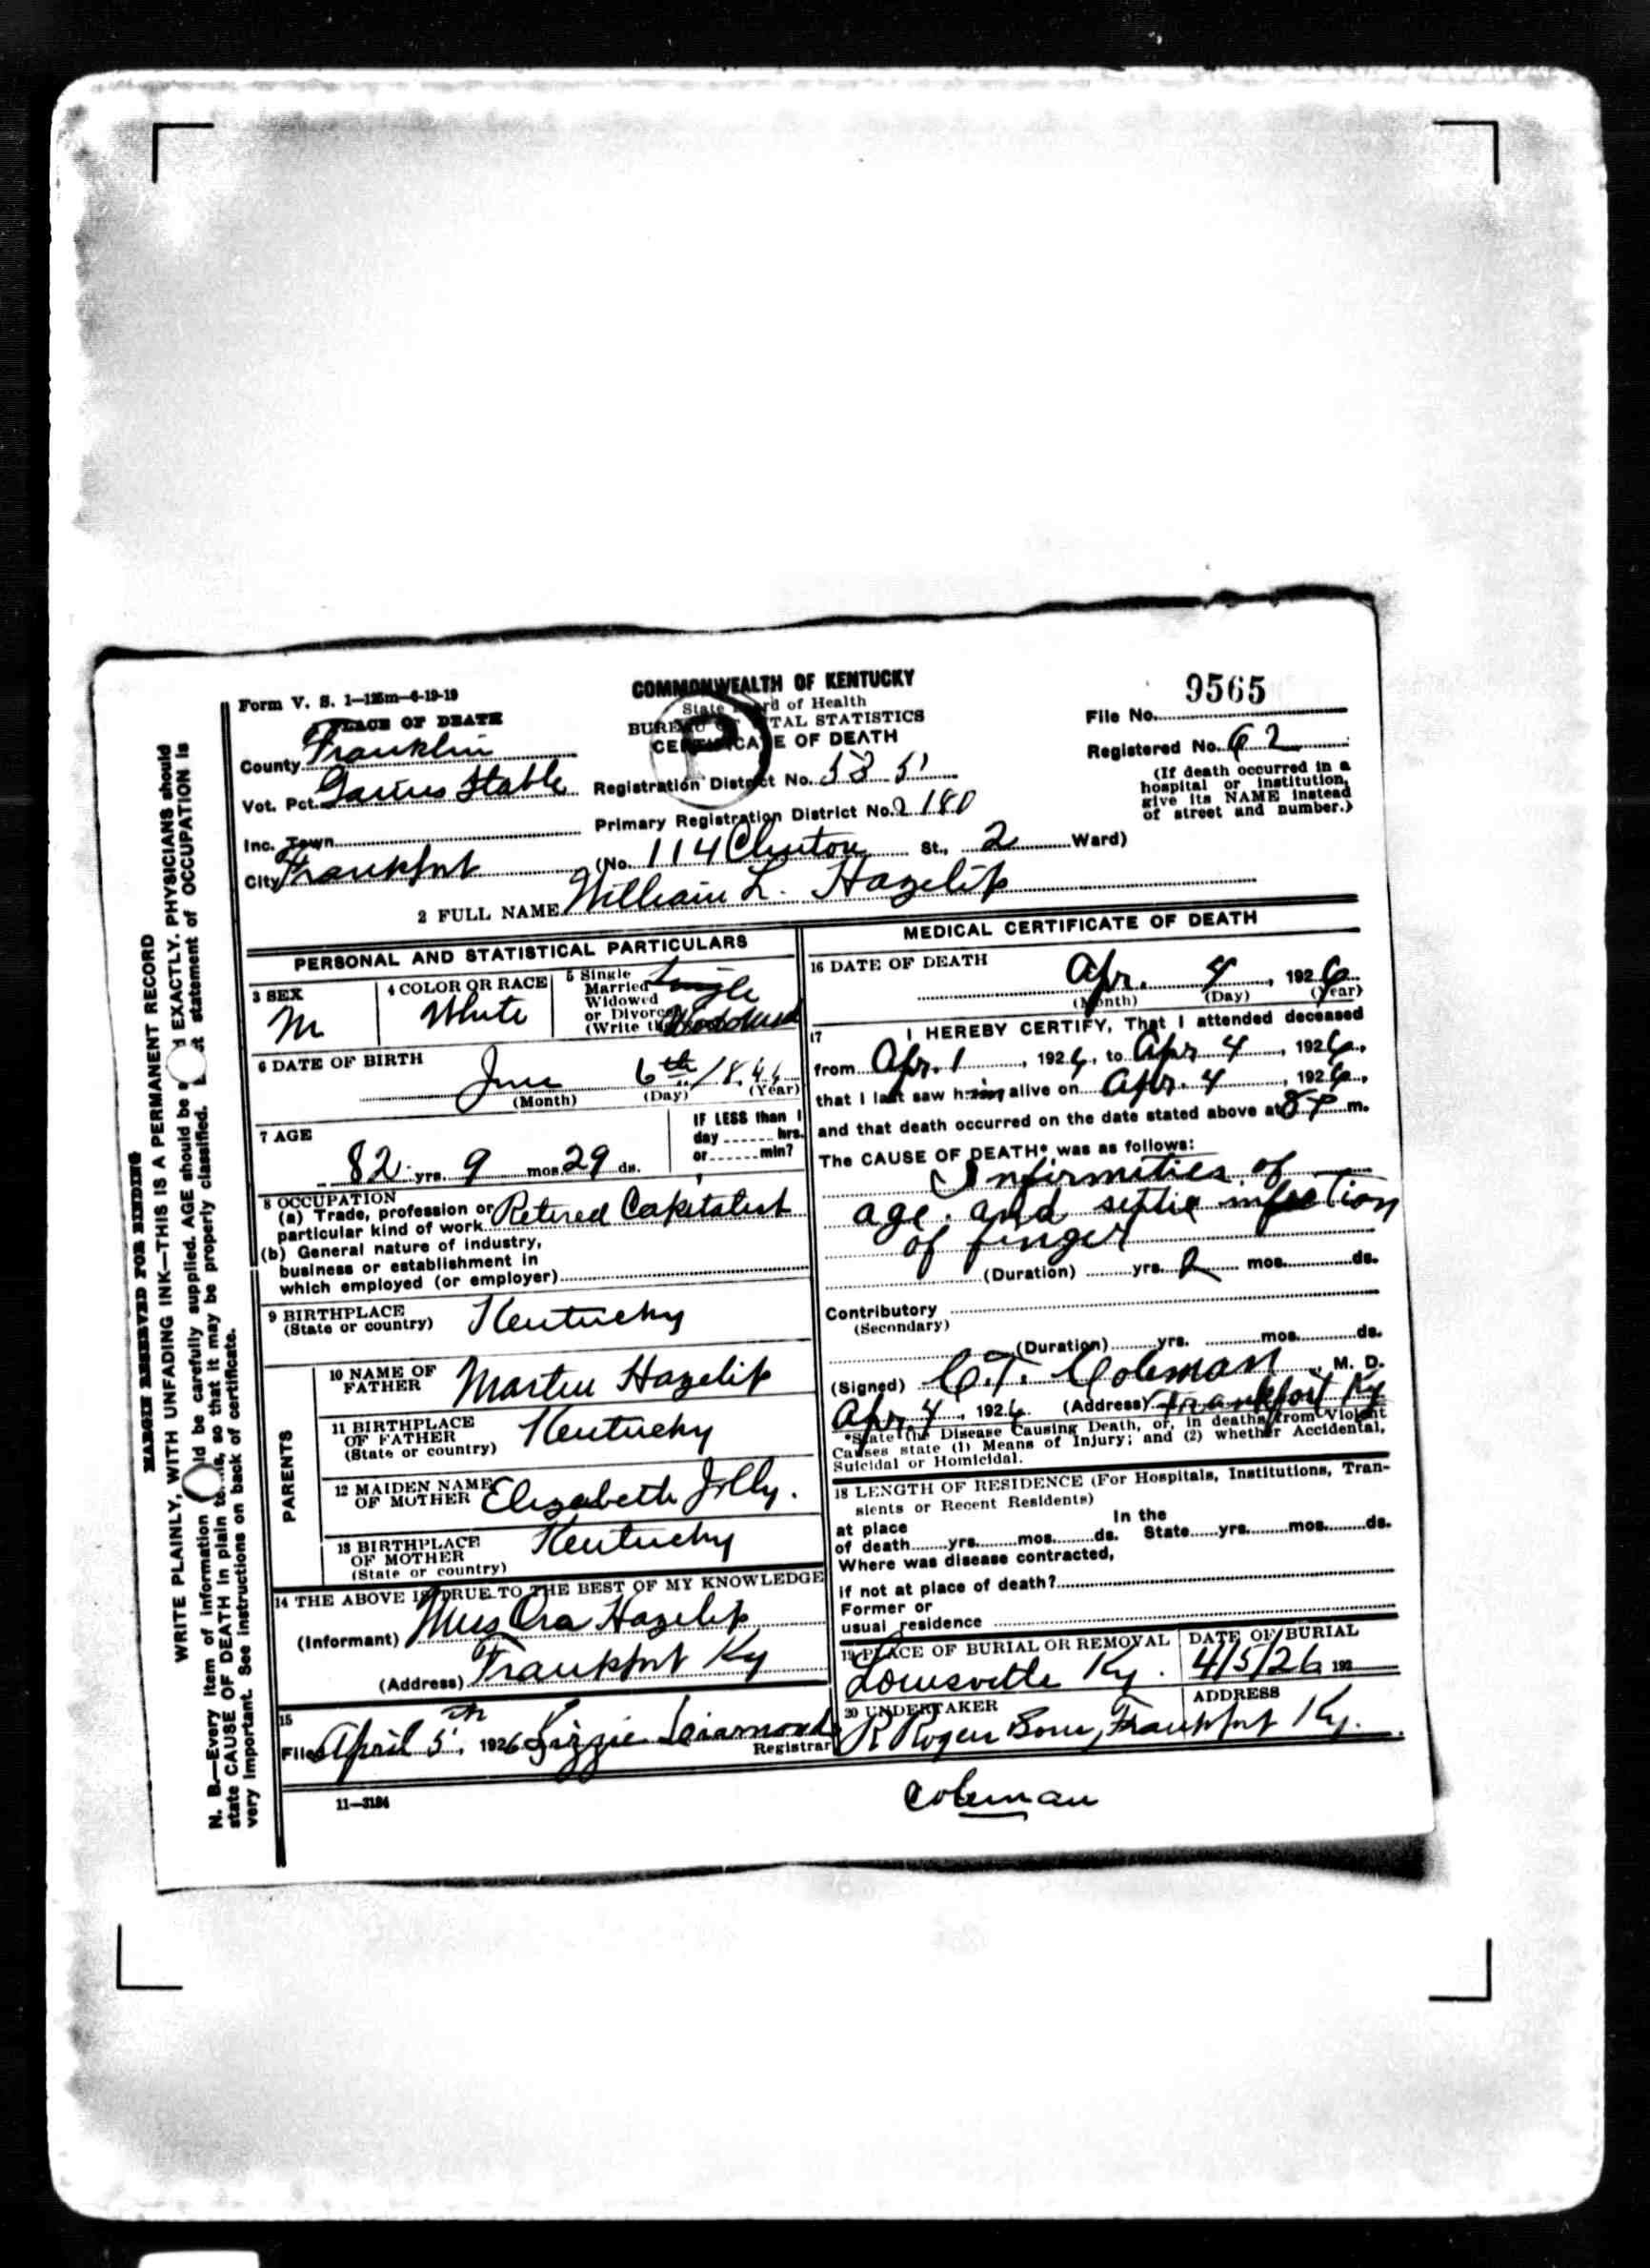 Form V. S. 1—125m—6-19-19
1 PLACE OF DEATH
County Franklin
Vot. Pct. Stable
Inc. Town
City Frankfort
COMMONWEALTH OF KENTUCKY
State Board of Health
BUREAU OF VITAL STATISTICS
CERTIFICATE OF DEATH
Registration District No.
Primary Registration District No. 2180
(No. 114 Clinton St., 2 Ward)
9565
File No.
Registered No. 62
(If death occurred in a
hospital or institution,
give its NAME instead
of street and number.)
2 FULL NAME William L. Hazelip
PERSONAL AND STATISTICAL PARTICULARS
3 SEX
M
4 COLOR OR RACE
White
5 Single
Married
Widowed
or Divorced
(Write the word)
Single
6 DATE OF BIRTH
June 6th
(Month) (Day) (Year)
7 AGE
82 yrs. 9 mos. 29 ds.
IF LESS than 1
day ...... hrs.
or ...... min?
8 OCCUPATION
(a) Trade, profession or
particular kind of work Retired Capitalist
(b) General nature of industry,
business or establishment in
which employed (or employer)
9 BIRTHPLACE
(State or country) Kentucky
PARENTS
10 NAME OF
FATHER Martin Hazelip
11 BIRTHPLACE
OF FATHER
(State or country) Kentucky
12 MAIDEN NAME
OF MOTHER Elizabeth Jolly.
13 BIRTHPLACE
OF MOTHER
(State or country) Kentucky
14 THE ABOVE IS TRUE TO THE BEST OF MY KNOWLEDGE
(Informant) Miss Ora Hazelip
(Address) Frankfort Ky
15
Filed April 5th, 1926 Lizzie Diamond
Registrar
11—3184
MEDICAL CERTIFICATE OF DEATH
16 DATE OF DEATH
Apr. 4, 1926
(Month) (Day) (Year)
17 I HEREBY CERTIFY, That I attended deceased
from Apr. 1, 1926, to Apr 4, 1926,
that I last saw him alive on Apr. 4, 1926,
and that death occurred on the date stated above at 8 P m.
The CAUSE OF DEATH* was as follows:
Infirmities of
age and septic infection
of finger
(Duration) yrs. 2 mos. ds.
Contributory
(Secondary)
(Duration) yrs. mos. ds.
(Signed) C. T. Coleman, M. D.
Apr 4, 1926 (Address) Frankfort Ky
*State the Disease Causing Death, or, in deaths from Violent
Causes state (1) Means of Injury; and (2) whether Accidental,
Suicidal or Homicidal.
18 LENGTH OF RESIDENCE (For Hospitals, Institutions, Tran-
sients or Recent Residents)
at place In the
of death yrs. mos. ds. State yrs. mos. ds.
Where was disease contracted,
if not at place of death?
Former or
usual residence
19 PLACE OF BURIAL OR REMOVAL
Louisville Ky.
DATE OF BURIAL
4/5/26 192
20 UNDERTAKER
R Rogers Sons, Frankfort Ky.
ADDRESS
Coleman
MARGIN RESERVED FOR BINDING
WRITE PLAINLY, WITH UNFADING INK—THIS IS A PERMANENT RECORD
N. B.—Every item of information should be carefully supplied. AGE should be EXACTLY. PHYSICIANS should
state CAUSE OF DEATH in plain terms, so that it may be properly classified. statement of OCCUPATION is
very important. See instructions on back of certificate.